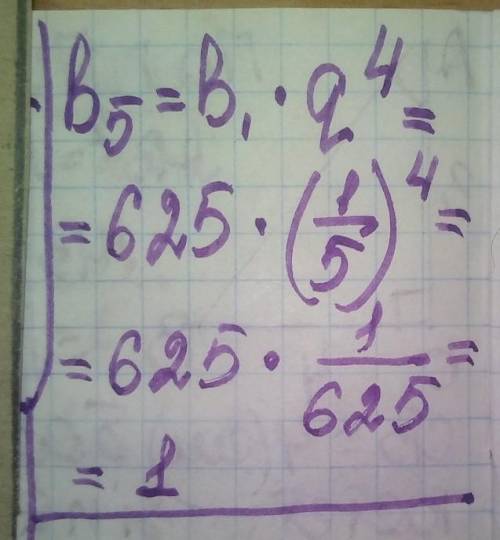 b₅ = b₁ · q⁴ =
= 625 · (1/5)⁴ =
= 625 · 1/625 =
= 1